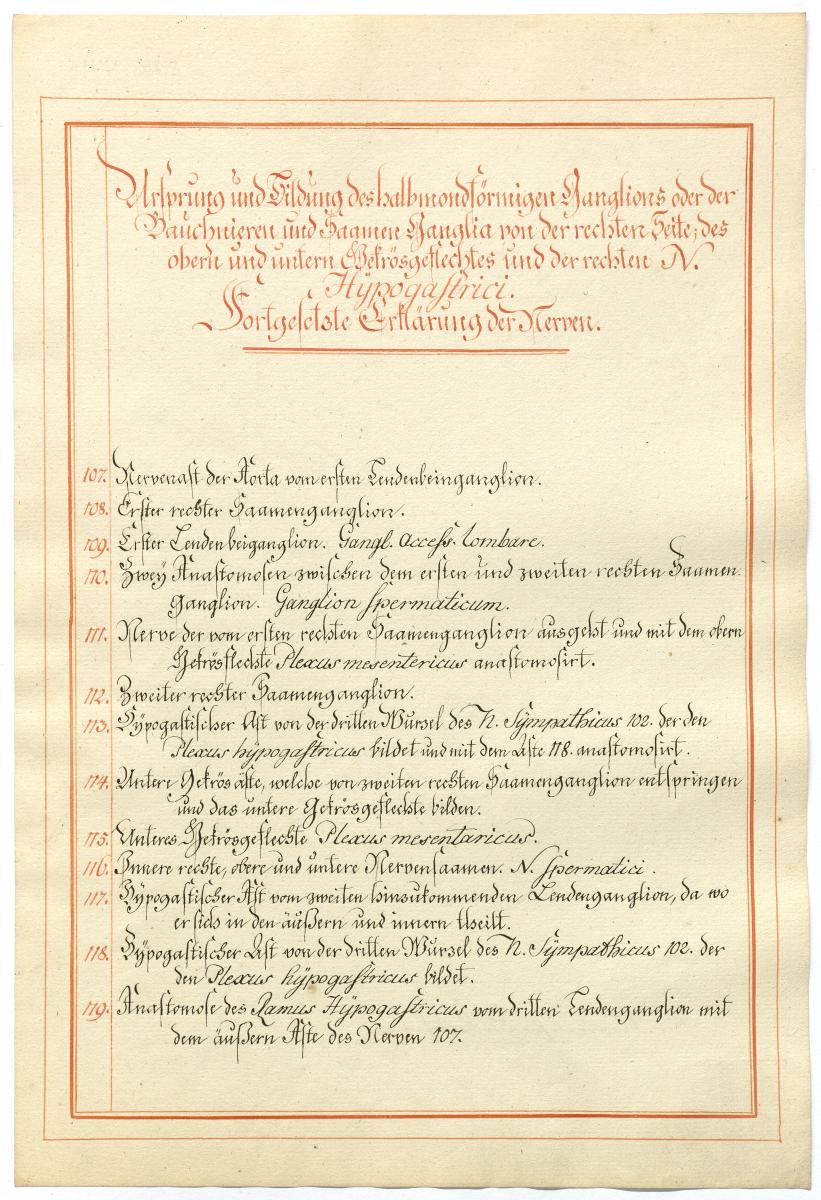 Ursprung und Bildung des halbmondförmigen Ganglions oder der
Bauchnieren und Saamen Ganglia von der rechten Seite; des
obern und untern Gekrösgeflechtes und der rechten N.
Hÿpogastrici.
Fortgesetzte Erklärung der Nerven.
107. Nervenast der Aorta vom ersten Lendenbeinganglion.
108. Erster rechter Saamenganglion.
109. Erster Lendenbeiganglion. Gangl. access. lombare.
110. Zweÿ Anastomosen zwischen dem ersten und zweiten rechten Saamen
Ganglion. Ganglion spermaticum.
111. Nerve der vom ersten rechten Saamenganglion ausgeht und mit dem obern
Gekrösflechte Plexus mesentericus anastomosirt.
112. Zweiter rechter Saamenganglion.
113. Hÿpogastischer Ast von der dritten Wurzel des N. Sÿmpathicus 102. der den
Plexus hÿpogastricus bildet und mit dem Aste 118. anastomosirt.
114. Untere Gekrösäste, welche von zweiten rechten Saamenganglion entspringen
und das untere Gekrösgeflechte bilden.
115. Unteres Gekrösgeflechte Plexus mesentaricus.
116. Innere rechte, obere und untere Nervensaamen. N. spermatici.
117. Hÿpogastischer Ast vom zweiten hinzukommenden Lendenganglion, da wo
er sich in den äußern und innern theilt.
118. Hÿpogastischer Ast von der dritten Wurzel des N. Sÿmpathicus 102. der
den Plexus hÿpogastricus bildet.
119. Anastomose des Ramus Hÿpogastricus vom dritten Lendenganglion mit
dem äußern Aste des Nerven 107.